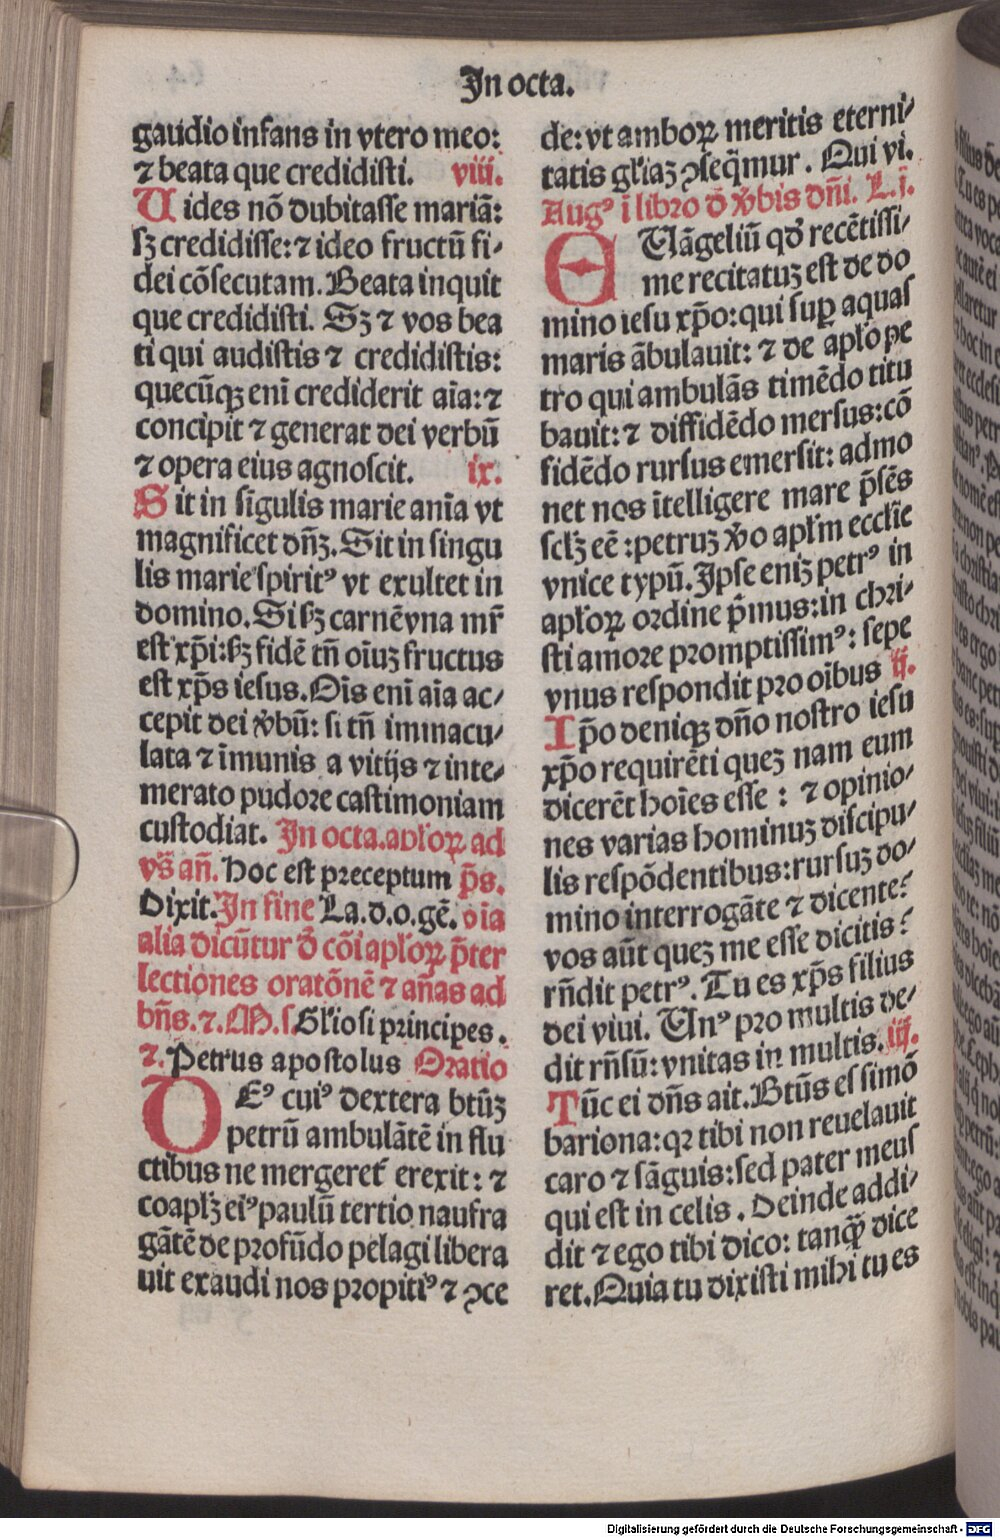 In octa.
gaudio infans in vtero meo:
⁊ beata que credidisti. viii.
Uides nō dubitasse mariā:
sꝫ credidisse: ⁊ ideo fructū fi-
dei cōsecutam. Beata inquit
que credidisti. Sꝫ ⁊ vos bea
ti qui audistis ⁊ credidistis:
quecūqꝫ eni crediderit aīa: ⁊
concipit ⁊ generat dei verbū
⁊ opera eius agnoscit. ix.
Sit in sigulis marie anīa vt
magnificet dn̄ꝫ. Sit in singu
lis marie spiritꝰ vt exultet in
domino. Si ßꝫ carnē vna mr̄
est xp̄i: ßꝫ fidē tn̄ oīuꝫ fructus
est xp̄s iesus. Oīs eni aīa ac-
cepit dei v̄bū: si tn̄ immacu-
lata ⁊ īmunis a vitijs ⁊ inte-
merato pudore castimoniam
custodiat. In octa. apl'oꝝ ad
vs̄ an̄. Hoc est preceptum p̄s.
Dixit. In fine La. d. o. gē. oīa
alia dicūtur d̄ cōi apl'oꝝ p̄ter
lectiones oratōnē ⁊ an̄as ad
bn̄s. ⁊. M. s. Gl'iosi principes.
⁊. Petrus apostolus Oratio
DEꝰ cuiꝰ dextera btūꝫ
petrū ambulātē in flu
ctibus ne mergeret' erexit: ⁊
coapl'ꝫ eiꝰ paulū tertio naufra
gātē de profūdo pelagi libera
uit exaudi nos propitiꝰ ⁊ ꝯce
de: vt amboꝝ meritis eterni-
tatis gl'iaꝫ ꝯseq̄mur. Qui vi.
Augꝰ ī libro d̄ v̄bis dn̄i. L. j.
EUāgeliū qd̓ recētissi-
me recitatuꝫ est de do
mino iesu xp̄o: qui suꝑ aquas
maris ābulauit: ⁊ de apl'o pe
tro qui ambulās timēdo titu
bauit: ⁊ diffidēdo mersus: cō
fidēdo rursus emersit: admo
net nos ītelligere mare p̄sēs
scl'ꝫ eē: petruꝫ v̄o apl'm eccl'ie
vnice typū. Ipse eniꝫ petrꝰ in
apl'oꝝ ordine p̄mus: in chri-
sti amore promptissimꝰ: sepe
vnus respondit pro oībus ij.
Ip̄o deniqꝫ dn̄o nostro iesu
xp̄o requirēti queꝫ nam eum
dicerēt hoīes esse: ⁊ opinio-
nes varias hominuꝫ discipu-
lis respōdentibus: rursuꝫ do-
mino interrogāte ⁊ dicente?
vos aūt queꝫ me esse dicitis?
rn̄dit petrꝰ. Tu es xp̄s filius
dei viui. Unꝰ pro multis de-
dit rn̄sū: vnitas in multis. iij.
Tūc ei dn̄s ait. Btūs es simō
bariona: qꝛ tibi non reuelauit
caro ⁊ sāguis: sed pater meus
qui est in celis. Deinde addi-
dit ⁊ ego tibi dico: tanqꝫ̄ dice
ret. Quia tu dixisti mihi tu es
Digitalisierung gefördert durch die Deutsche Forschungsgemeinschaft - DFG